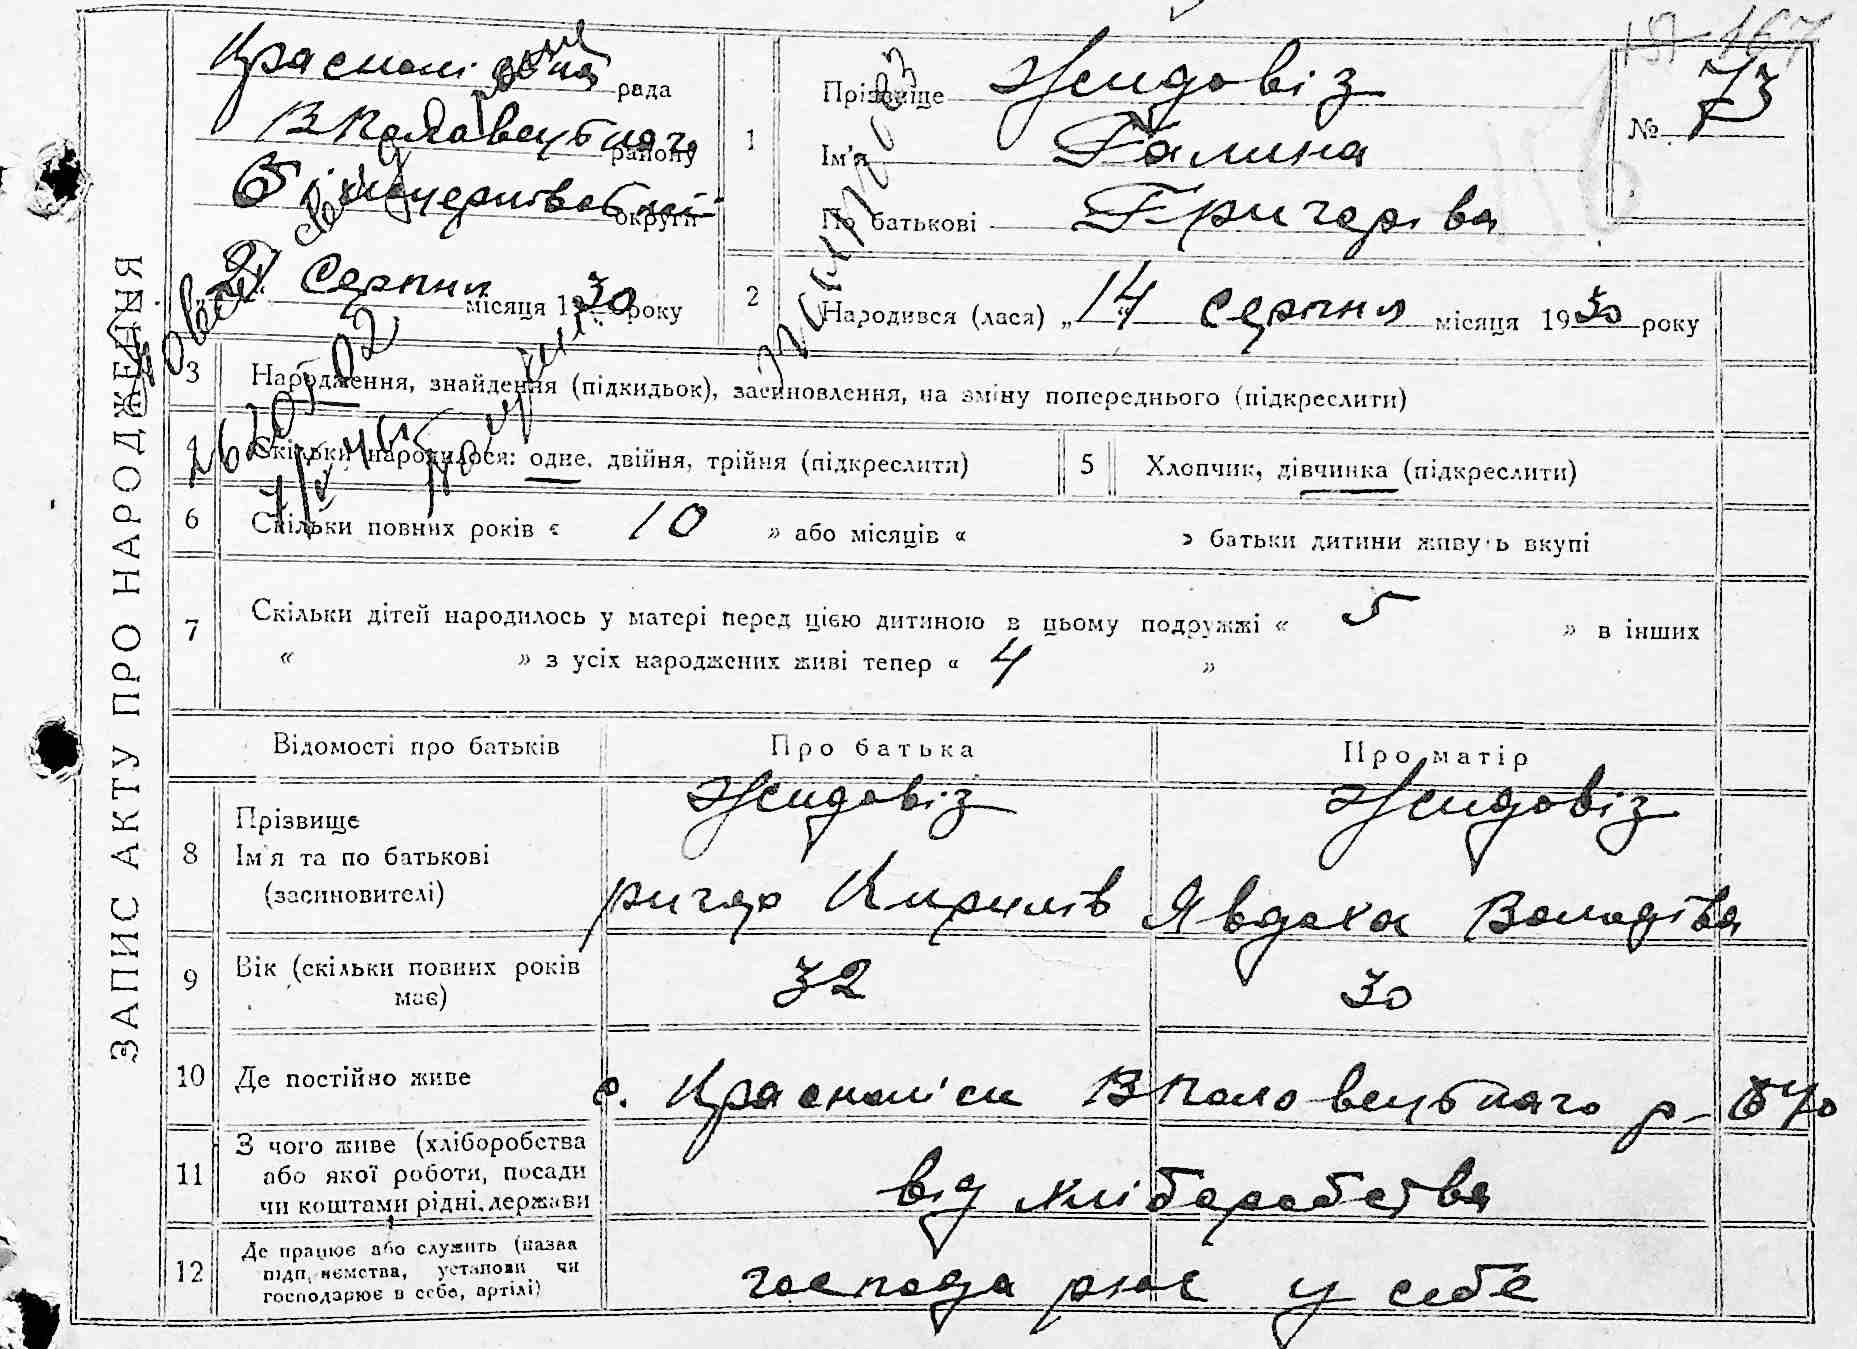 ЗАПИС АКТУ ПРО НАРОДЖЕННЯ
рада
району
округи
Серпня місяця 1930 року
№ 73
1
Прізвище Жидовіз
Ім'я Галина
По батькові Григорівна
2 Народився (лася) „14" Серпня місяця 1930 року
3 Народження, знайдення (підкидьок), засиновлення, на зміну попереднього (підкреслити)
4 Скільки народилося: одне, двійня, трійня (підкреслити)
5 Хлопчик, дівчинка (підкреслити)
6 Скільки повних років « 10 » або місяців « » батьки дитини живуть вкупі
7 Скільки дітей народилось у матері перед цією дитиною в цьому подружжі « 5 » в інших
« » з усіх народжених живі тепер « 4 »
Відомості про батьків Про батька Про матір
8 Прізвище
Ім'я та по батькові
(засиновителі)
Жидовіз Жидовіз
Кирилів Явдоха
9 Вік (скільки повних років має) 32 30
10 Де постійно живе с.
11 З чого живе (хліборобства
або якої роботи, посади
чи коштами рідні, держави
від хліборобства
12 Де працює або служить (назва
підприємства, установи чи
господарює в себе, артілі)
господарює у себе